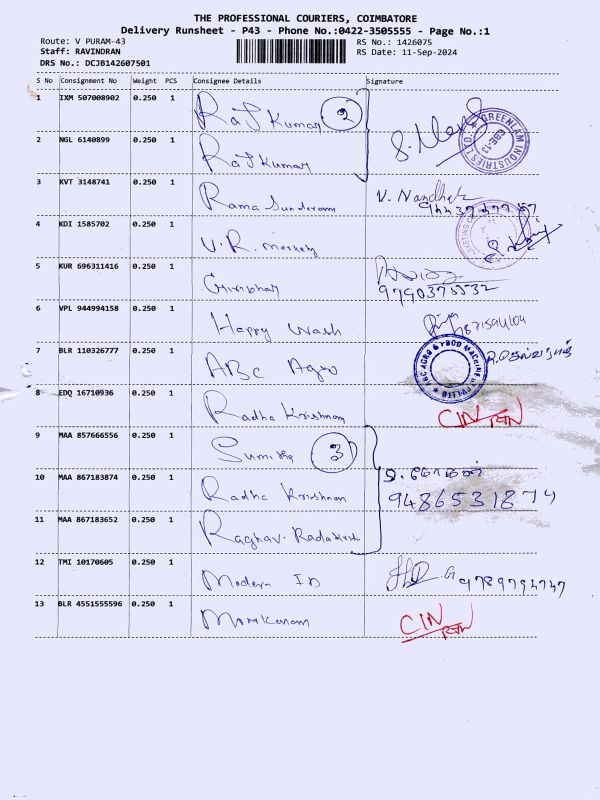 THE PROFESSIONAL COURIERS, COIMBATORE
Delivery Runsheet - P43 - Phone No.:0422-3505555 - Page No.:1
Route: V PURAM-43
Staff: RAVINDRAN
DRS No.: DCJB142607501
RS No.: 1426075
RS Date: 11-Sep-2024
S No Consignment No Weight PCS Consignee Details Signature
1 IXM 507008902 0.250 1 Raj Kumar 2
GREENLAM INDUSTRIES LTD
2 NGL 6140899 0.250 1 Raj Kumar
3 KVT 3148741 0.250 1 Rama Sundaram V.
4 KDI 1585702 0.250 1 V.R.
5 KUR 696311416 0.250 1
9790375532
6 VPL 944994158 0.250 1 Happy Wash
7 BLR 110326777 0.250 1 ABC Agro
ABC AGRO & FOOD MACHINE
8 EDQ 16710936 0.250 1 Radha Krishnan CIN
9 MAA 857666556 0.250 1 3
10 MAA 867183874 0.250 1 Radha Krishnan
9486531874
11 MAA 867183652 0.250 1 Raghav.
12 TMI 10170605 0.250 1 Modern
13 BLR 4551555596 0.250 1 CIN